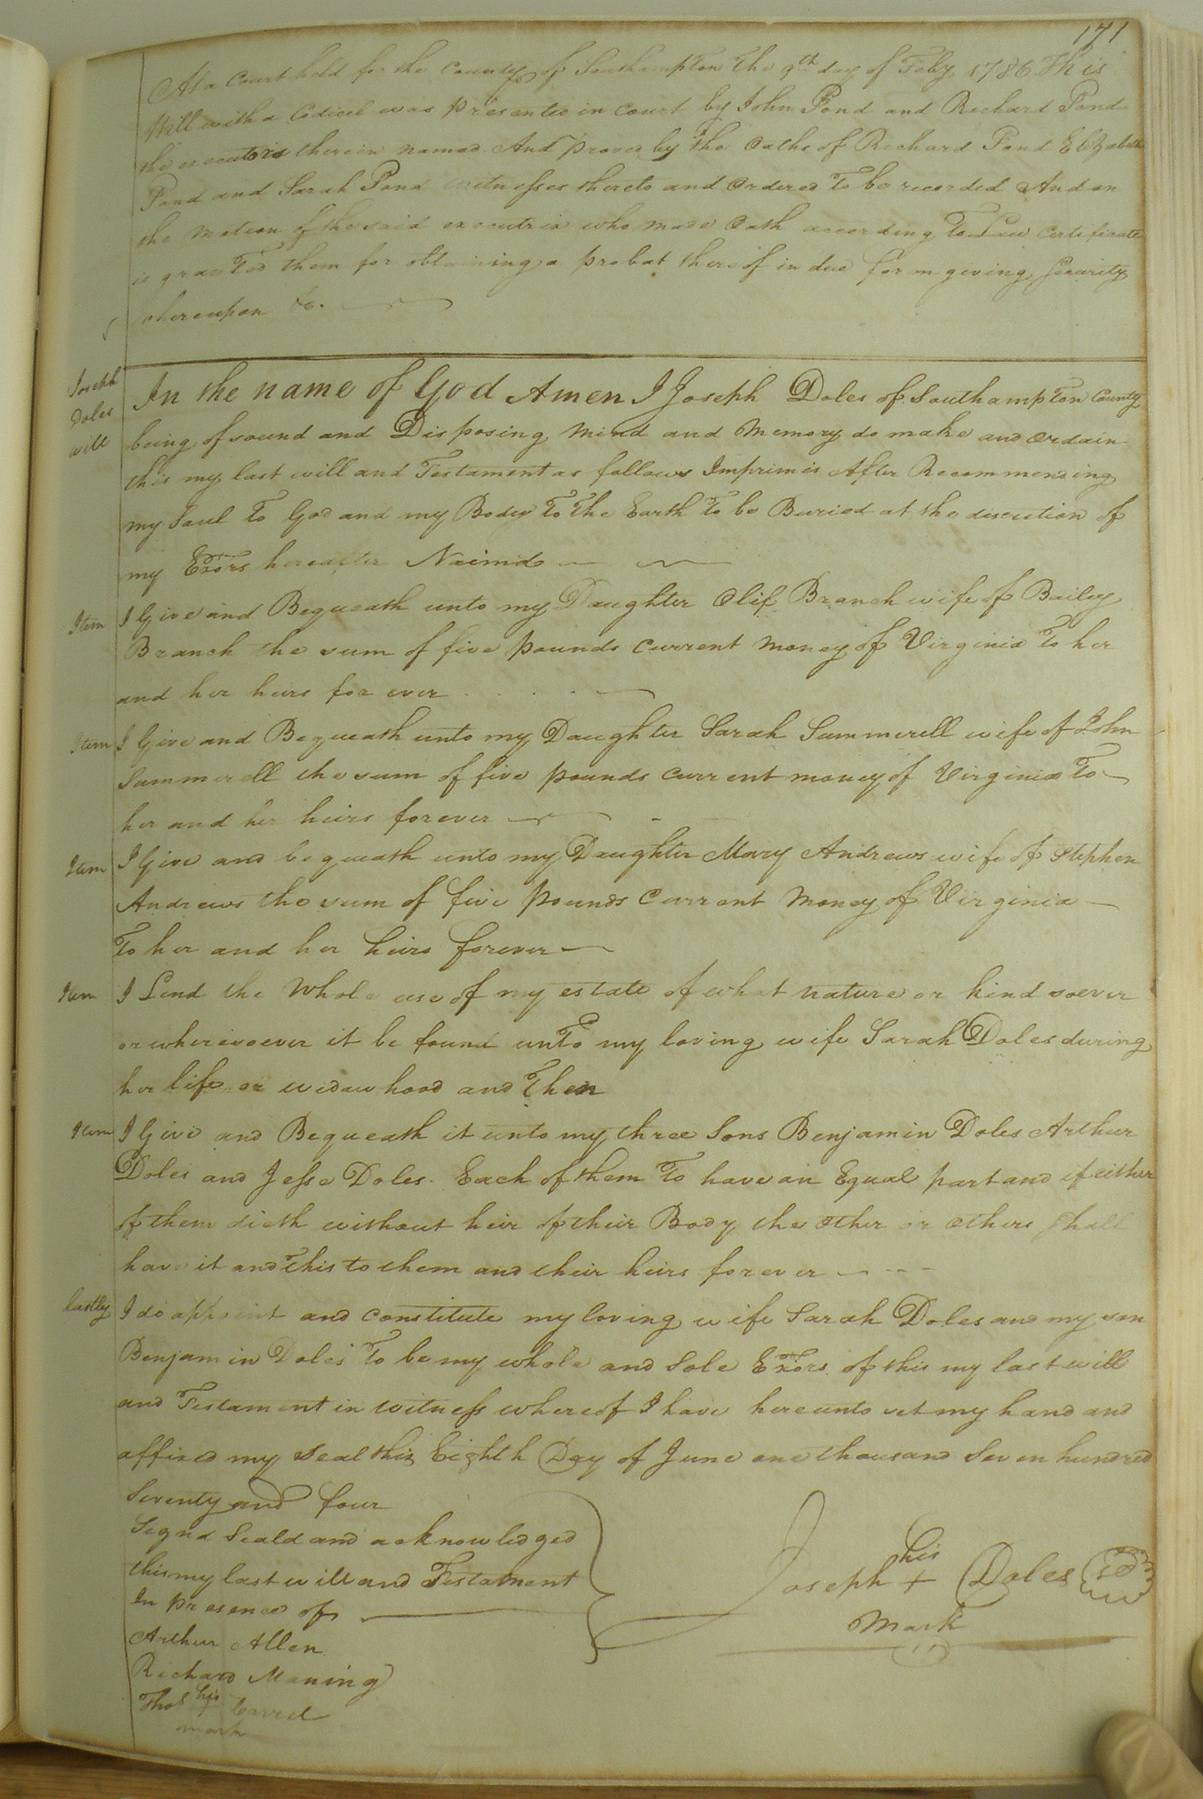 171
At a Court held for the County of Southampton the 9th day of Feby 1786 This
Will with a Codicil was presented in Court by John Pond and Richard Pond
the executors therein named And proved by the Oaths of Richard Pond Elizabeth
Pond and Sarah Pond witnesses thereto and Ordered To be recorded And on
the Motion of the said executrix who made Oath according To Law Certificate
is granted them for obtaining a probat thereof in due form giving Security
whereupon &c.
Joseph
Doles
will
In the name of God Amen I Joseph Doles of Southampton County
being of sound and Disposing Mind and Memory do make and Ordain
this my last will and Testament as follows Imprimis After Recommending
my Soul To God and my Body To The Earth To be Buried at the discretion of
my Exors hereafter Naimd
Item I Give and Bequeath unto my Daughter Olif Branch wife of Bailey
Branch the sum of five pounds Current Money of Virginia To her
and her heirs for ever
Item I Give and Bequeath unto my Daughter Sarah Summerell wife of John
Summerell the sum of five pounds Current money of Virginia To
her and her heirs forever
Item I Give and bequeath unto my Daughter Mary Andrews wife of Stephen
Andrews the sum of five pounds Current Money of Virginia
To her and her heirs forever
Item I Lend the Whole use of my estate of what nature or kind soever
or wheresoever it be found unto my loving wife Sarah Doles during
her life or widowhood and Then
Item I Give and Bequeath it unto my three Sons Benjamin Doles Arthur
Doles and Jesse Doles. Each of them To have an Equal part and if either
of them dieth without heir of their Body the Other or Others Shall
have it and This to them and their heirs forever
lastly I do appoint and Constitute my loving wife Sarah Doles and my son
Benjamin Doles To be my whole and Sole Exors of this my last will
and Testament in witness whereof I have hereunto set my hand and
affixed my Seal this Eighth Day of June one thousand Seven hundred
Seventy and four
Signd Seald and acknowledged
this my last will and Testament
In presence of
Arthur Allen
Richard Maning
Thos his +
mark
his
Joseph + Doles Sd
Mark